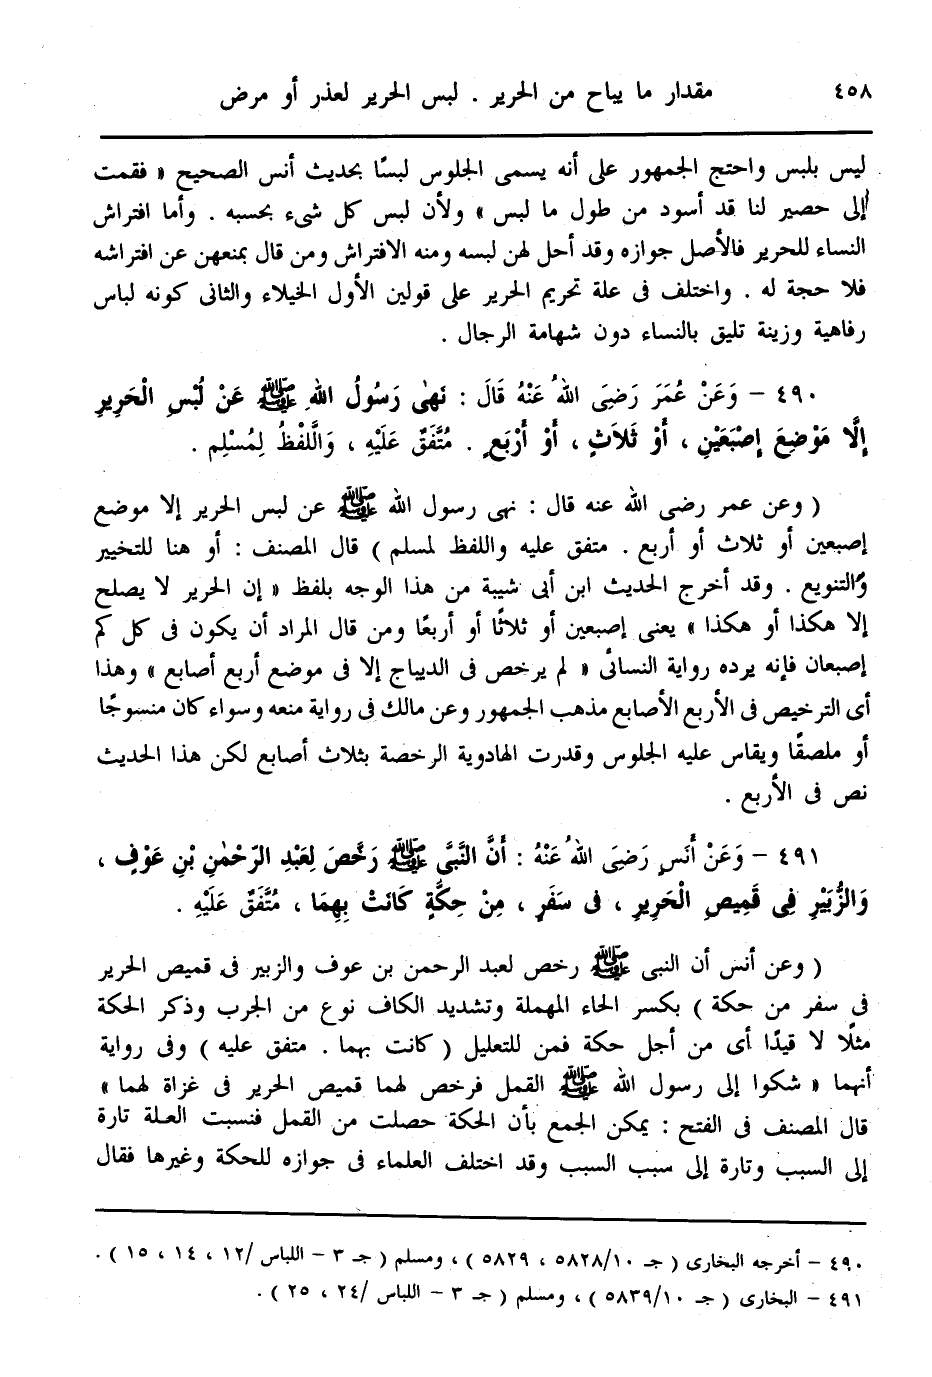 ٤٥٨ مقدار ما يباح من الحرير . لبس الحرير لعذر أو مرض
ليس بلبس واحتج الجمهور على أنه يسمى الجلوس لبسًا بحديث أنس الصحيح « فقمت
إلى حصير لنا قد أسود من طول ما لبس » ولأن لبس كل شىء بحسبه . وأما افتراش
النساء للحرير فالأصل جوازه وقد أحل لهن لبسه ومنه الافتراش ومن قال بمنعهن عن افتراشه
فلا حجة له . واختلف فى علة تحريم الحرير على قولين الأول الخيلاء والثانى كونه لباس
رفاهية وزينة تليق بالنساء دون شهامة الرجال .
٤٩٠ – وَعَنْ عُمَرَ رَضِىَ اللهُ عَنْهُ قَالَ : نَهٰى رَسُولُ اللهِ ﷺ عَنْ لُبْسِ الْحَرِيرِ
إِلَّا مَوْضِعَ إِصْبَعَيْنِ ، أَوْ ثَلَاثٍ ، أَوْ أَرْبَعٍ . مُتَّفَقٌ عَلَيْهِ ، وَالَّلفْظُ لِمُسْلِم .
( وعن عمر رضى الله عنه قال : نهى رسول الله ﷺ عن لبس الحرير إلا موضع
إصبعين أو ثلاث أو أربع . متفق عليه واللفظ لمسلم ) قال المصنف : أو هنا للتخيير
والتنويع . وقد أخرج الحديث ابن أبى شيبة من هذا الوجه بلفظ « إن الحرير لا يصلح
إلا هكذا أو هكذا » يعنى إصبعين أو ثلاثًا أو أربعًا ومن قال المراد أن يكون فى كل كم
إصبعان فإنه يرده رواية النسائى « لم يرخص فى الديباج إلا فى موضع أربع أصابع » وهذا
أى الترخيص فى الأربع الأصابع مذهب الجمهور وعن مالك فى رواية منعه وسواء كان منسوجًا
أو ملصقًا ويقاس عليه الجلوس وقدرت الهادوية الرخصة بثلاث أصابع لكن هذا الحديث
نص فى الأربع .
٤٩١ – وَعَنْ أَنَسٍ رَضِىَ اللهُ عَنْهُ : أَنَّ النَّبِىَّ ﷺ رَخَّصَ لِعَبْدِ الرّحْمٰنِ بْنِ عَوْفٍ ،
وَالزُّبَيْرِ فِى قَمِيصِ الْحَرِيرِ ، فى سَفَرٍ ، مِنْ حِكَّةٍ كَانَتْ بِهِمَا ، مُتَّفَقٌ عَلَيْهِ .
( وعن أنس أن النبى ﷺ رخص لعبد الرحمن بن عوف والزبير فى قميص الحرير
فى سفر من حكة ) بكسر الحاء المهملة وتشديد الكاف نوع من الجرب وذكر الحكة
مثلًا لا قيدًا أى من أجل حكة فمن للتعليل ( كانت بهما . متفق عليه ) وفى رواية
أنهما « شكوا إلى رسول الله ﷺ القمل فرخص لهما قميص الحرير فى غزاة لهما »
قال المصنف فى الفتح : يمكن الجمع بأن الحكة حصلت من القمل فنسبت العلة تارة
إلى السبب وتارة إلى سبب السبب وقد اختلف العلماء فى جوازه للحكة وغيرها فقال
٤٩٠ – أخرجه البخارى ( جـ ٥٨٢٨/١٠ ، ٥٨٢٩ ) ، ومسلم ( جـ ٣ – اللباس /١٢ ، ١٤ ، ١٥ ) .
٤٩١ – البخارى ( جـ ٥٨٣٩/١٠ ) ، ومسلم ( جـ ٣ – اللباس /٢٤ ، ٢٥ ) .